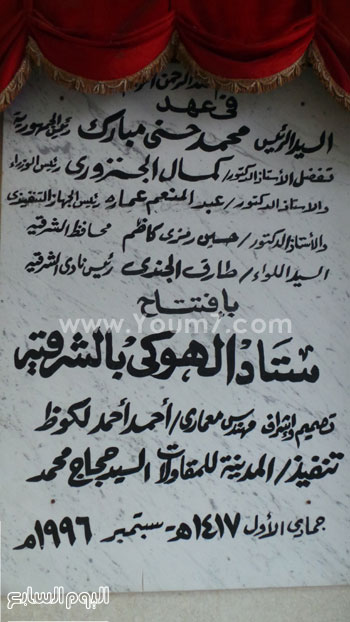 الرحمن
فى عهد
السيد الرئيس محمد حسنى مبارك رئيس الجمهورية
تفضل الأستاذ الدكتور/ كمال الجنزورى رئيس الوزراء
والأستاذ الدكتور/ عبد المنعم عماره رئيس الجهاز التنفيذى
والأستاذ الدكتور/ حسين رمزى كاظم محافظ الشرقية
السيد اللواء/ طارق الجندى رئيس نادى الشرقية
بإفتتاح
www.Youm7.com
ستاد الهوكى بالشرقية
تصميم وإشراف مهندس معمارى/ أحمد أحمد لكوظ
تنفيذ/ المدينة للمقاولات السيد حجاج محمد
جمادى الأول ١٤١٧هـ - سبتمبر ١٩٩٦م
اليوم السابع